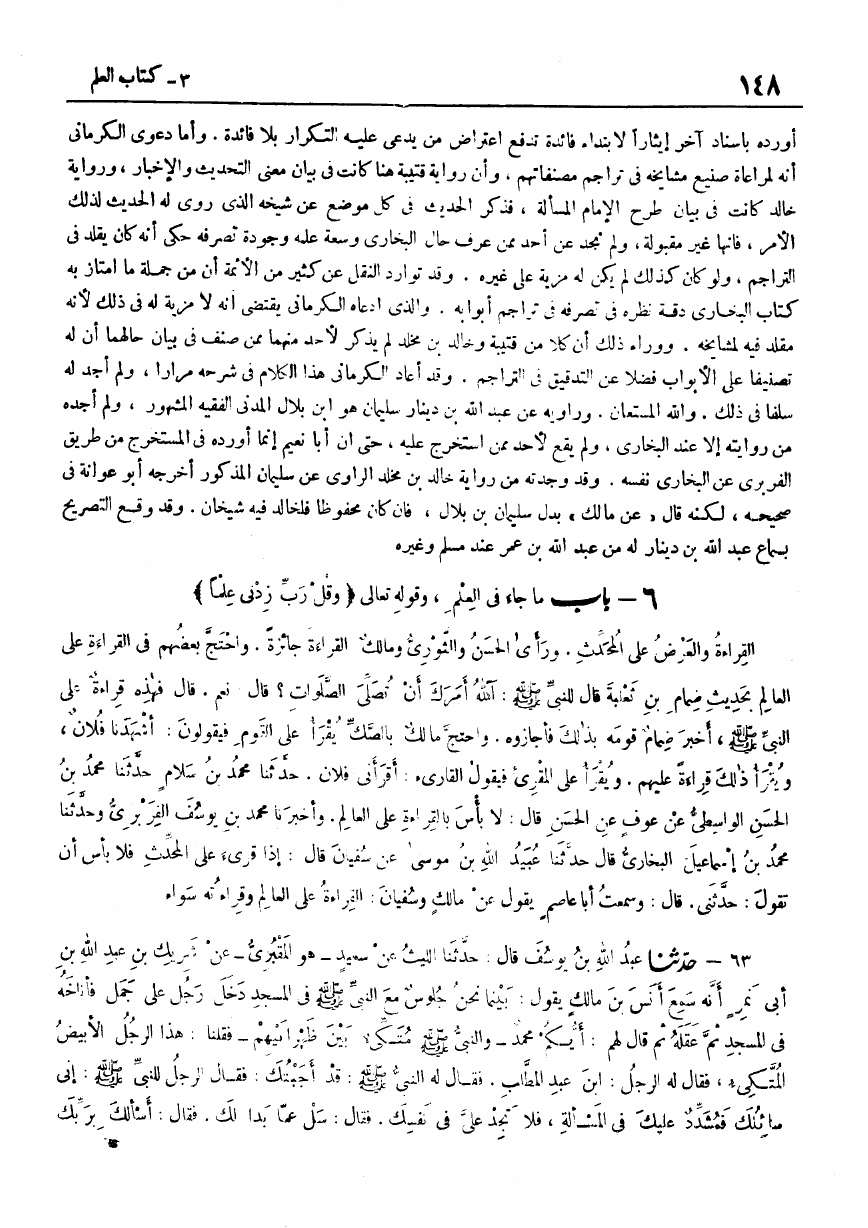 ١٤٨
٣ - كتاب العلم
أورده باسناد آخر إيثاراً لابتداء فائدة تدفع اعتراض من يدعى عليه التكرار بلا فائدة . وأما دعوى الكرمانى
أنه لمراعاة صنيع مشايخه فى تراجم مصنفاتهم ، وأن رواية قتيبة هنا كانت فى بيان معنى التحديث والإخبار ، ورواية
خالد كانت فى بيان طرح الإمام المسألة ، فذكر الحديث فى كل موضع عن شيخه الذى روى له الحديث لذلك
الأمر ، فانها غير مقبولة ، ولم نجد عن أحد ممن عرف حال البخارى وسعة علمه وجودة تصرفه حكى أنه كان يقلد فى
التراجم ، ولو كان كذلك لم يكن له مزية على غيره . وقد توارد النقل عن كثير من الأئمة أن من جملة ما امتاز به
كتاب البخارى دقة نظره فى تصرفه فى تراجم أبوابه . والذى ادعاه الكرمانى يقتضى أنه لا مزية له فى ذلك لأنه
مقلد فيه لمشايخه . ووراء ذلك أن كلا من قتيبة وخالد بن مخلد لم يذكر لأحد منهما ممن صنف فى بيان حالهما أن له
تصنيفا على الأبواب فضلا عن التدقيق فى التراجم . وقد أعاد الكرمانى هذا الكلام فى شرحه مرارا ، ولم أجد له
سلفا فى ذلك . والله المستعان . وراويه عن عبد الله بن دينار سليمان هو ابن بلال المدنى الفقيه المشهور ، ولم أجده
من روايته إلا عند البخارى ، ولم يقع لأحد ممن استخرج عليه ، حتى ان أبا نعيم إنما أورده فى المستخرج من طريق
الفربرى عن البخارى نفسه . وقد وجدته من رواية خالد بن مخلد الراوى عن سليمان المذكور أخرجه أبو عوانة فى
صحيحه ، لكنه قال « عن مالك » بدل سليمان بن بلال ، فان كان محفوظا فلخالد فيه شيخان . وقد وقع التصريح
بسماع عبد الله بن دينار له من عبد الله بن عمر عند مسلم وغيره
٦ - باب ما جاء فى العِلْمِ ، وقولِه تعالى ﴿ وقُلْ رَبِّ زِدْنى عِلْمًا ﴾
القِراءةُ والعَرْضُ على المُحَدِّثِ . ورأَى الحسَنُ والثَّوْرِىُّ ومالكٌ القراءَةَ جائزةً . واحْتَجَّ بعضُهم فى القراءَةِ على
العالِمِ بحَديثِ ضِمامِ بنِ ثَعلَبةَ قال للنبىِّ ﷺ : آللهُ أمَرَكَ أنْ تُصَلِّىَ الصَّلَواتِ ؟ قال نعم . قال فهٰذهِ قِراءَةٌ على
النبىِّ ﷺ ، أخبرَ ضِمامٌ قومَه بذٰلكَ فأجازوه . واحتجَّ مالكٌ بالصَّكِّ يُقْرَأُ على القومِ فيقولونَ : أَشْهَدَنا فُلانٌ ،
ويُقْرَأُ ذٰلكَ قِراءةً عليهم . ويُقْرَأُ على المُقْرِئِ فيقولُ القارىءُ : أقرَأَنى فلان . حدَّثَنا محمدُ بنُ سَلامٍ حدَّثَنا محمدُ بنُ
الحسَنِ الواسِطىُّ عنْ عوفٍ عنِ الحسَنِ قال : لا بأْسَ بالقِراءةِ على العالِمِ . وأخبرَنا محمد بن يوسُفَ الفِرَبْرِىُّ وحدَّثَنا
محمدُ بنُ إسْماعيلَ البخارىُّ قال حدَّثَنا عُبَيدُ اللهِ بنُ موسىٰ عن سُفيانَ قال : إذا قرىءَ على المُحَدِّثِ فلا بأس أن
تقولَ : حدَّثَنى . قال : وسمعتُ أبا عاصمٍ يقول عنْ مالكٍ وسُفيانَ : القِراءةُ على العالِمِ وقراءتُه سَواء
٦٣ - حدّثنا عبدُ اللهِ بنُ يوسُفَ قال : حدَّثَنا الليثُ عنْ سعيدٍ - هو المَقْبُرِىُّ - عنْ شَرِيكِ بنِ عبدِ اللهِ بنِ
أبى نَمِرٍ أنَّه سَمِعَ أنَسَ بنَ مالكٍ يقول : بَيْنَما نحنُ جُلوسٌ معَ النبىِّ ﷺ فى المسجدِ دَخَلَ رَجُلٌ على جَمَلٍ فأناخَهُ
فى المسجدِ ثمَّ عَقَلَهُ ثم قال لهم : أيُّكمْ محمدٌ - والنبىُّ ﷺ مُتَّكِىءٌ بَيْنَ ظَهْرانَيْهِمْ - فقلنا : هذا الرجُلُ الأبيضُ
المُتَّكِىءُ ، فقال له الرجلُ : ابنَ عبدِ المطَّلبِ . فقال له النبىُّ ﷺ : قدْ أجَبْتُكَ : فقال الرجلُ للنبىِّ ﷺ : إنى
سائِلُكَ فمُشَدِّدٌ عليكَ فى المَسْألةِ ، فلا تَجِدْ علىَّ فى نَفسِكَ . فقال : سَلْ عمَّا بَدا لكَ . فقال : أسْألُكَ بِرَبِّكَ